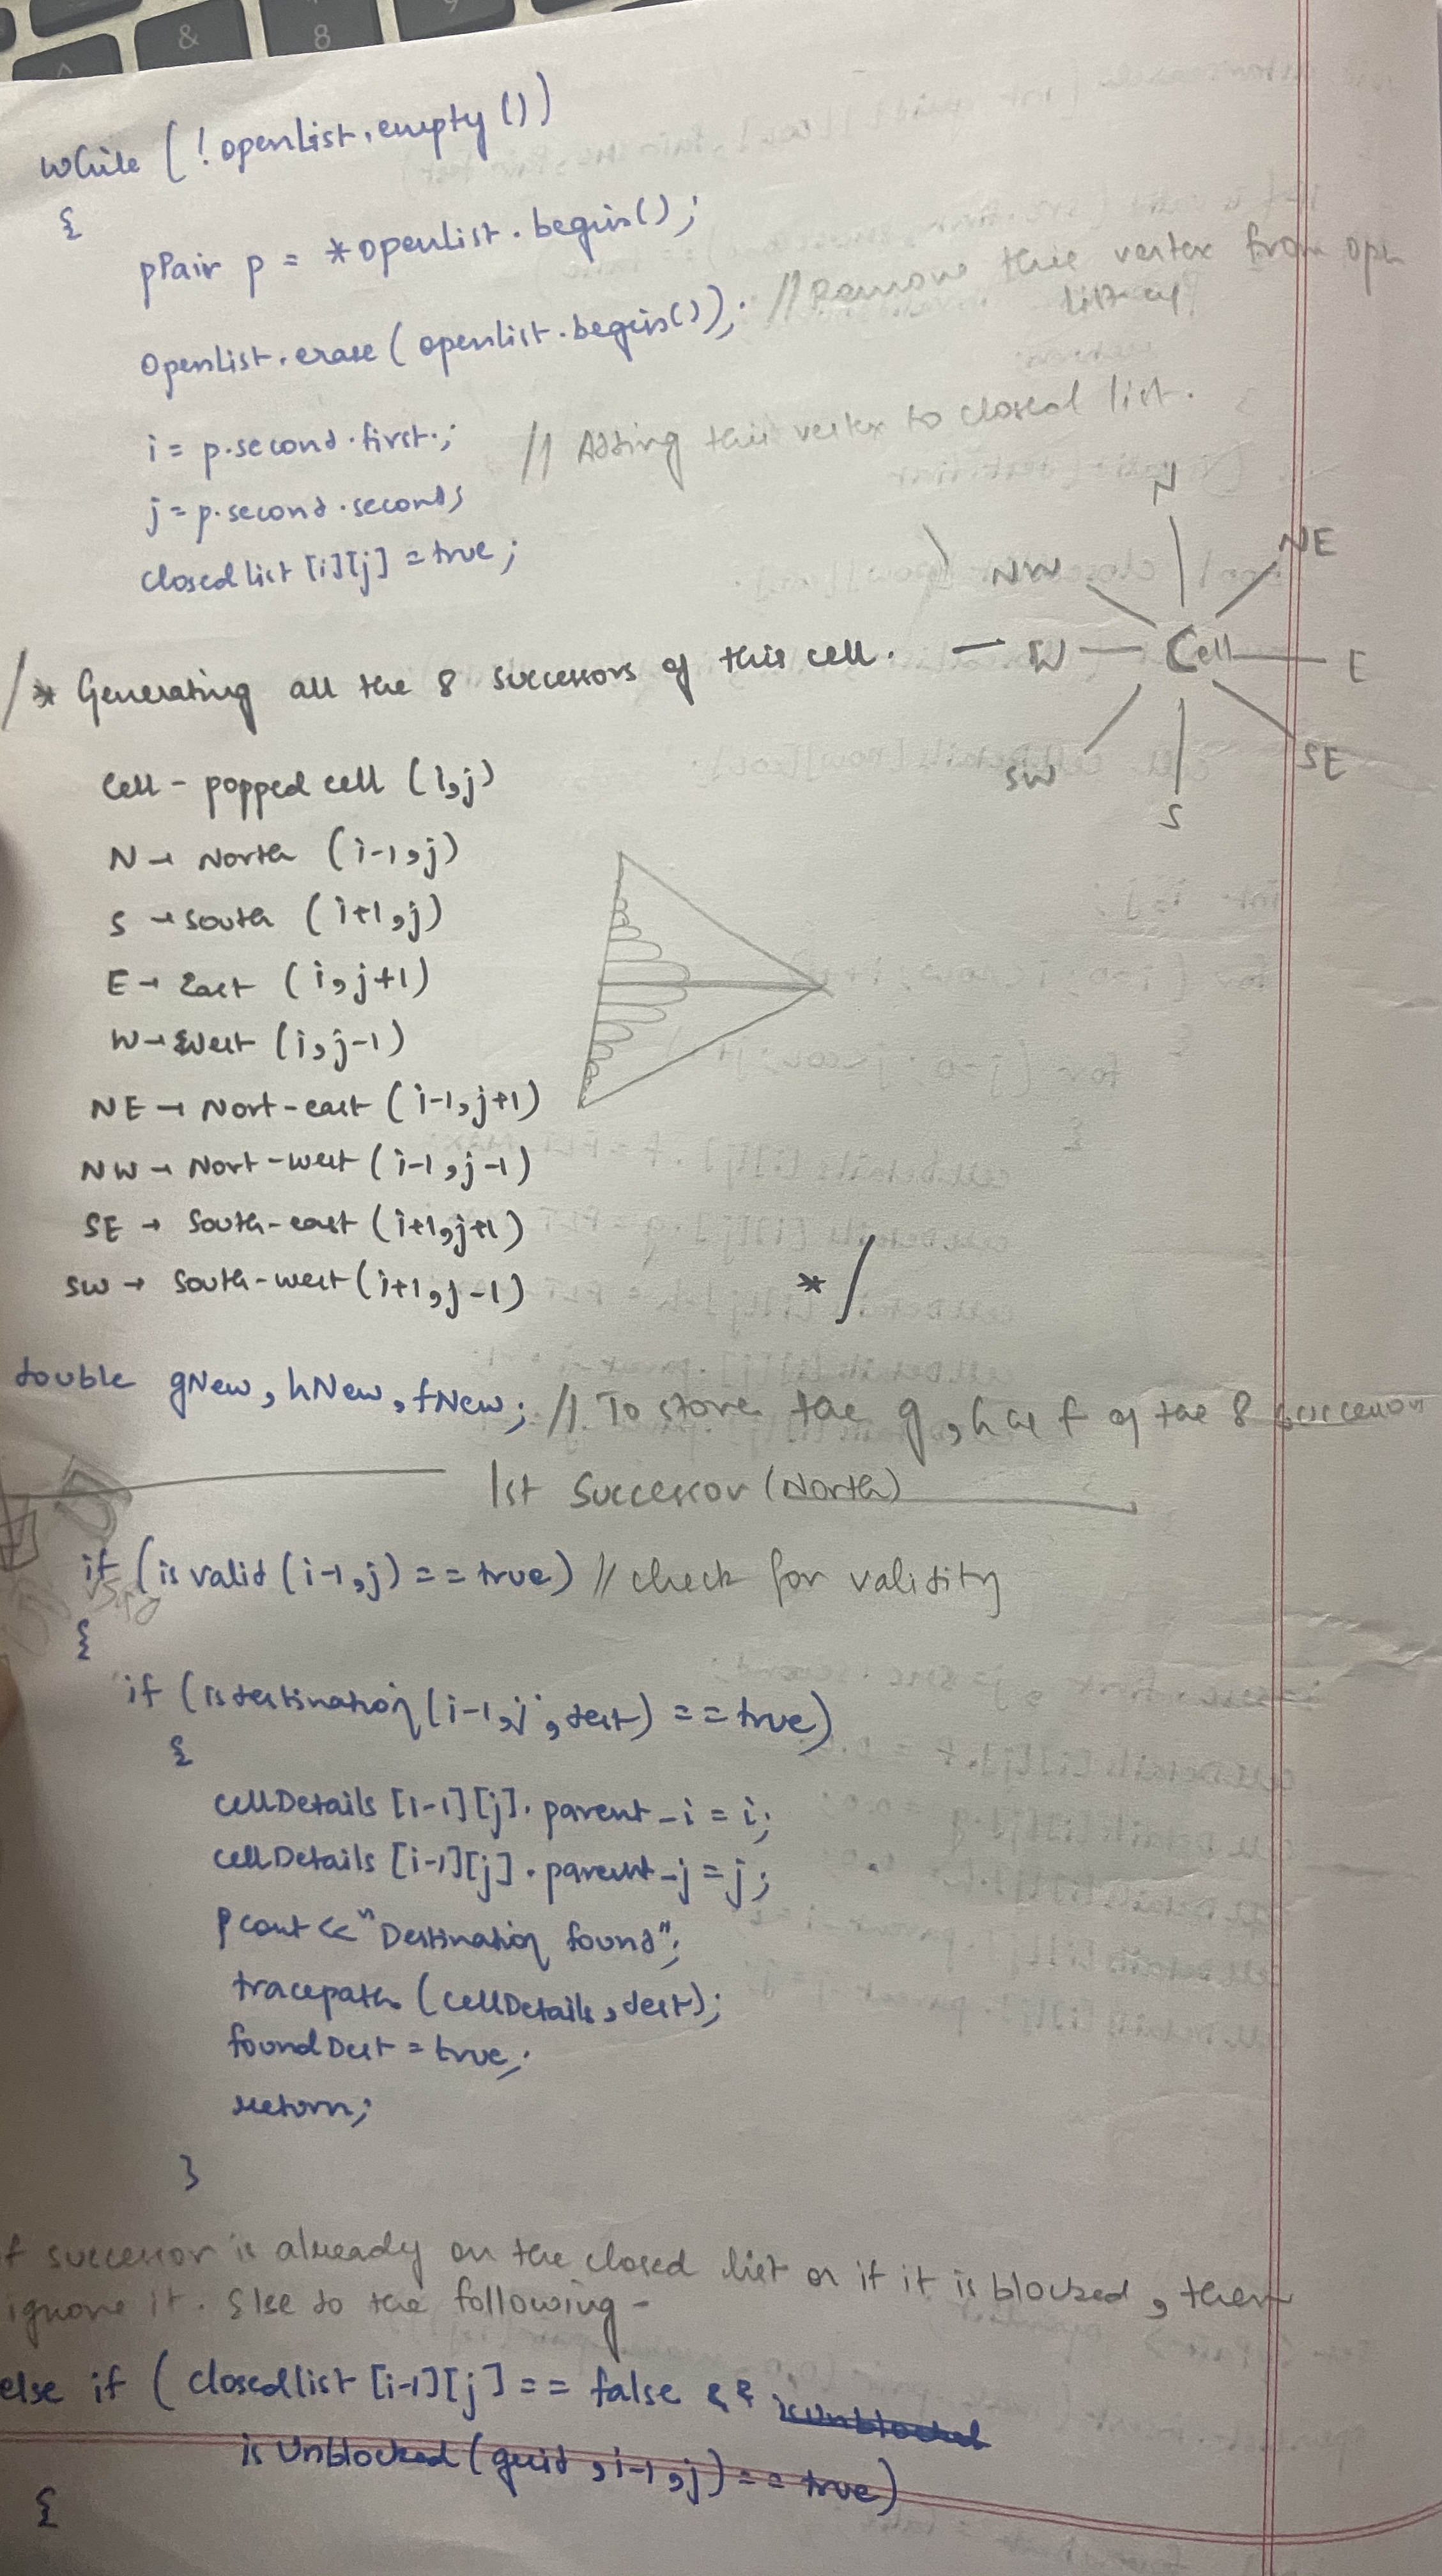 &
8
9
while (!openList.empty())
{
pPair p = *openlist.begin();
Openlist.erase(openlist.begin()); // Remove this vertex from open
list
i = p.second.first; // Adding this vertex to closed list.
j = p.second.second;
closedlist[i][j] = true;
/* Generating all the 8 successors of this cell.
N
NW NE
W Cell E
SW SE
S
Cell - popped cell (i,j)
N → North (i-1,j)
S → South (i+1,j)
E → East (i,j+1)
W → West (i,j-1)
NE → Nort-east (i-1,j+1)
NW → Nort-west (i-1,j-1)
SE → South-east (i+1,j+1)
SW → South-west (i+1,j-1) */
double gNew, hNew, fNew; // To store the g, h & f of the 8 successors
1st Successor (North)
if (isvalid(i-1,j) == true) // check for validity
{
if (isdestination(i-1,j,dest) == true)
{
cellDetails[i-1][j].parent_i = i;
cellDetails[i-1][j].parent_j = j;
cout << "Destination found";
tracepath(cellDetails, dest);
foundDest = true;
return;
}
f successor is already on the closed list or if it is blocked, then
ignore it. Else do the following -
else if (closedlist[i-1][j] == false &&
isUnblocked(grid, i-1, j) == true)
{